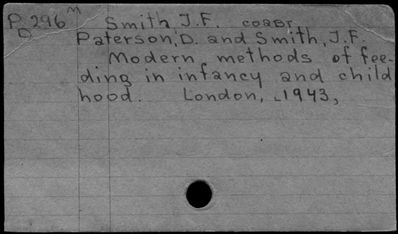 P 296 M Smith, J.F. соавт.
D Paterson, D. and Smith, J.F.
Modern methods of fee-
ding in infancy and child
hood. London, 1943,